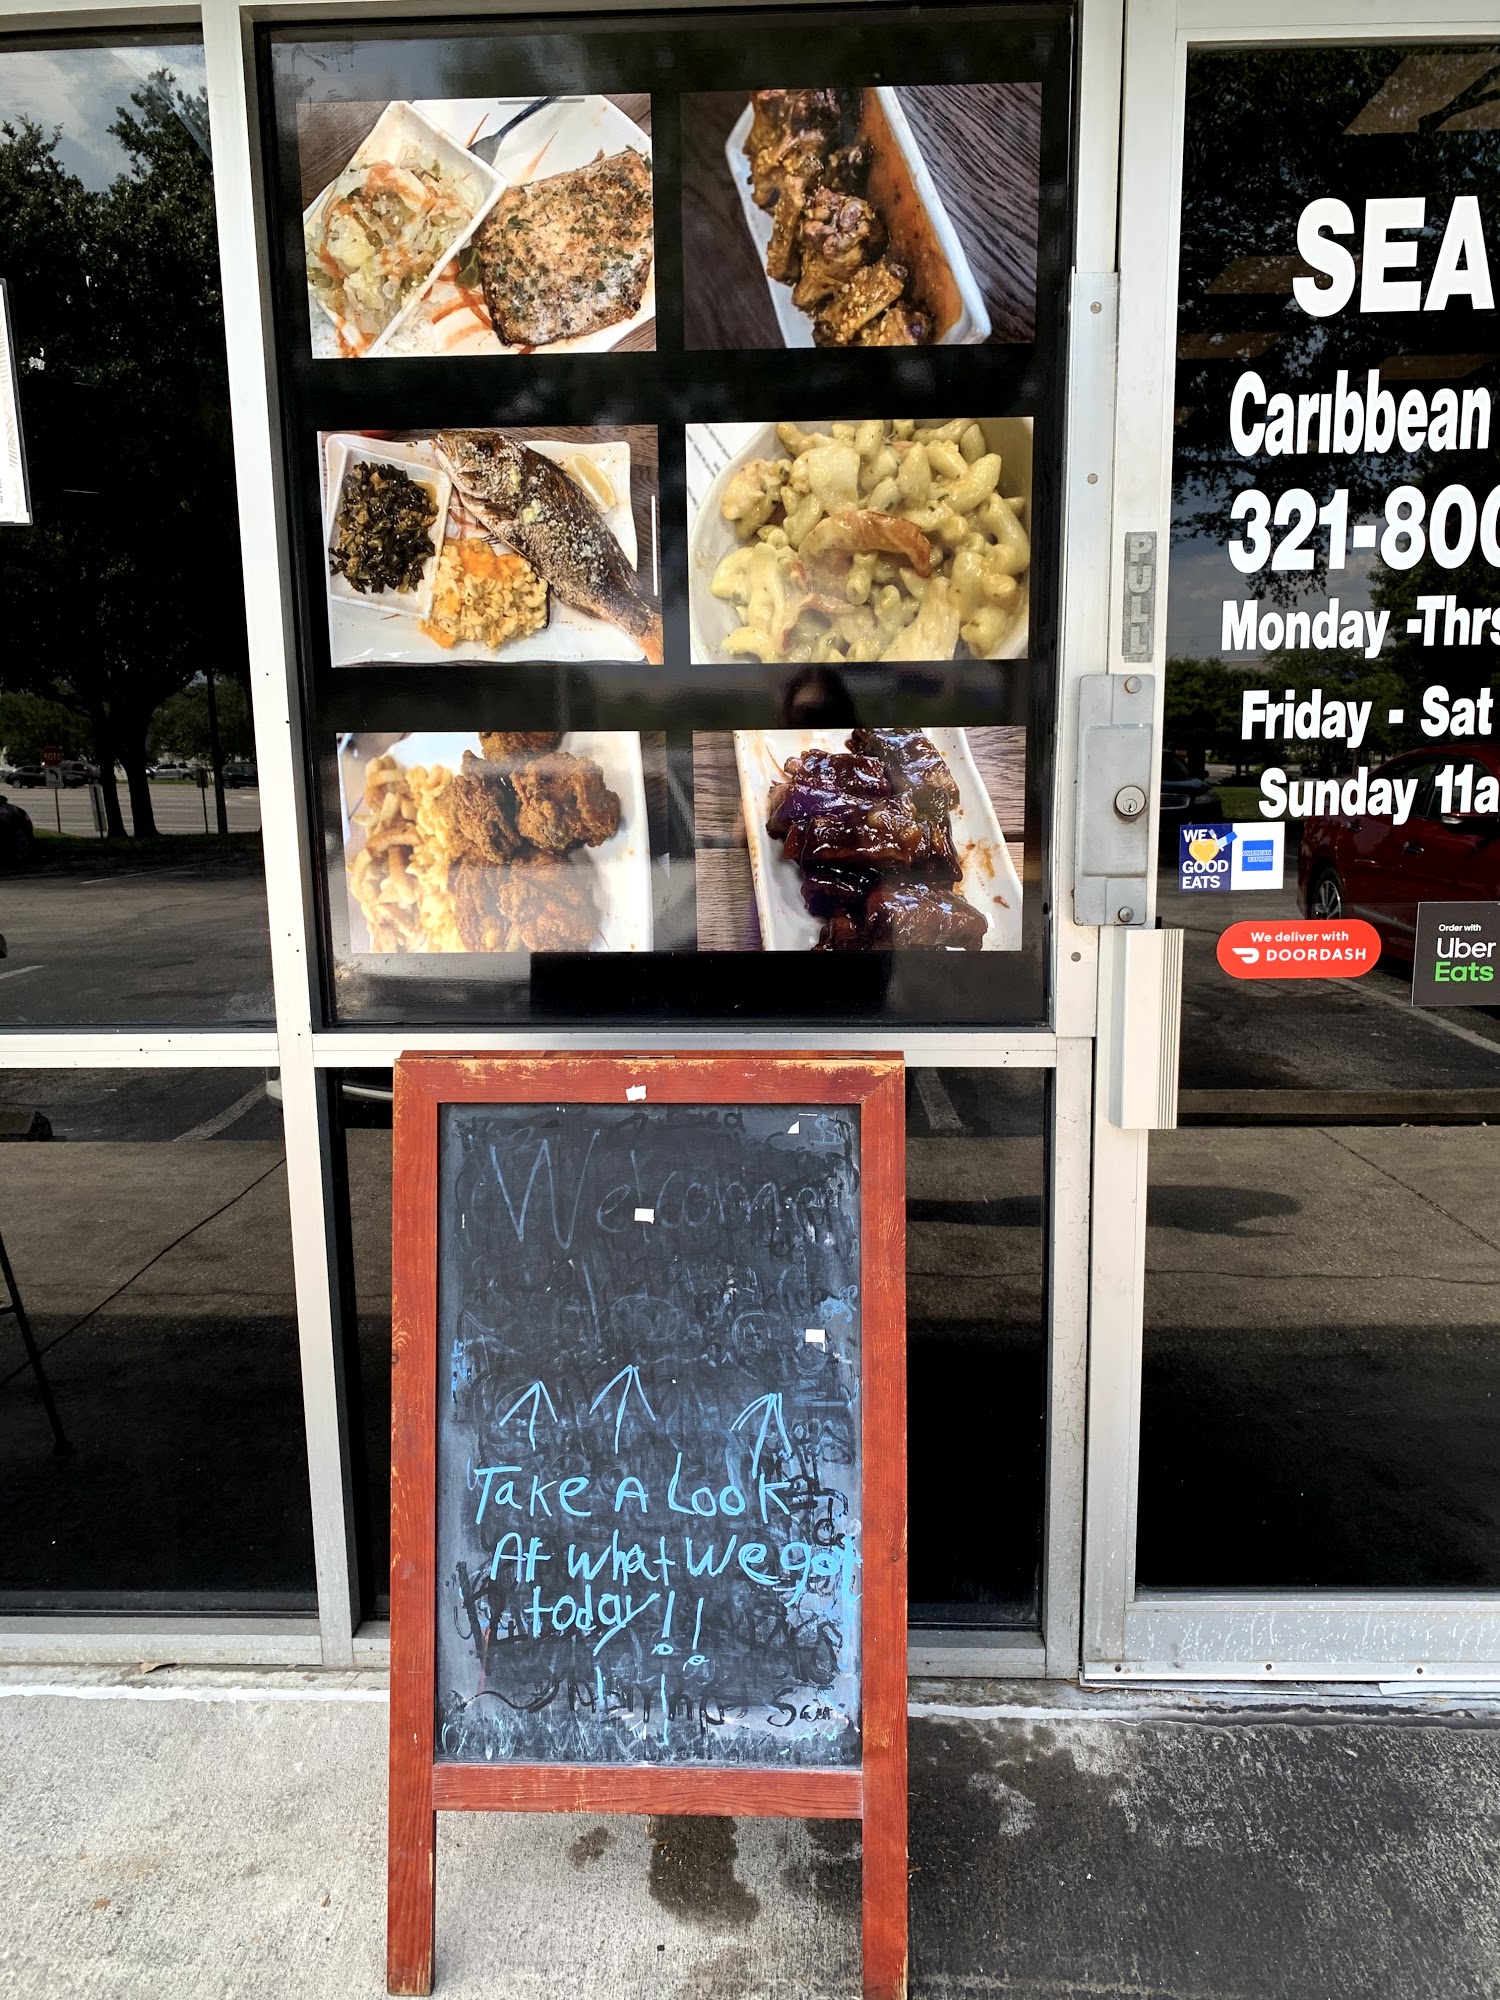 SEA
Caribbean
321-800
Monday -Thrs
Friday - Sat
Sunday 11a
PULL
WE
GOOD
EATS
AMERICAN
EXPRESS
We deliver with
DOORDASH
Order with
Uber
Eats
Welcome
Take A Look
At what We got
today!!